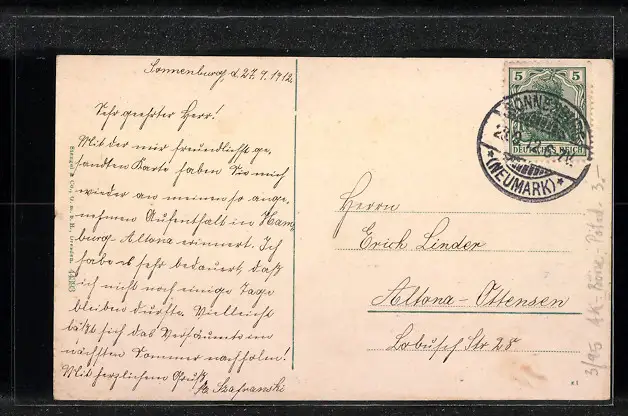 Sonnenburg, d. 27.9.1912.
Sehr geehrter Herr!
Mit der mir freundlichst ge,
sandten Karte haben Sie mich
wieder an meinen so ange,
nehmen Aufenthalt in Ham,
burg-Altona erinnert. Ich
habe es sehr bedauert, daß
ich nicht noch einige Tage
bleiben durfte. Vielleicht
läßt sich das Versäumte im
nächsten Sommer nachholen!
Mit herzlichem Gruß
Szafranski
Stengel & Co., G. m. b. H., Dresden. 44883
5 5
DEUTSCHES REICH
SONNENBURG
*(NEUMARK)*
Herrn
Erich Linder
Altona-Ottensen
Lobusch Str 28
3/95 AK-Börse Potsd. 3.-